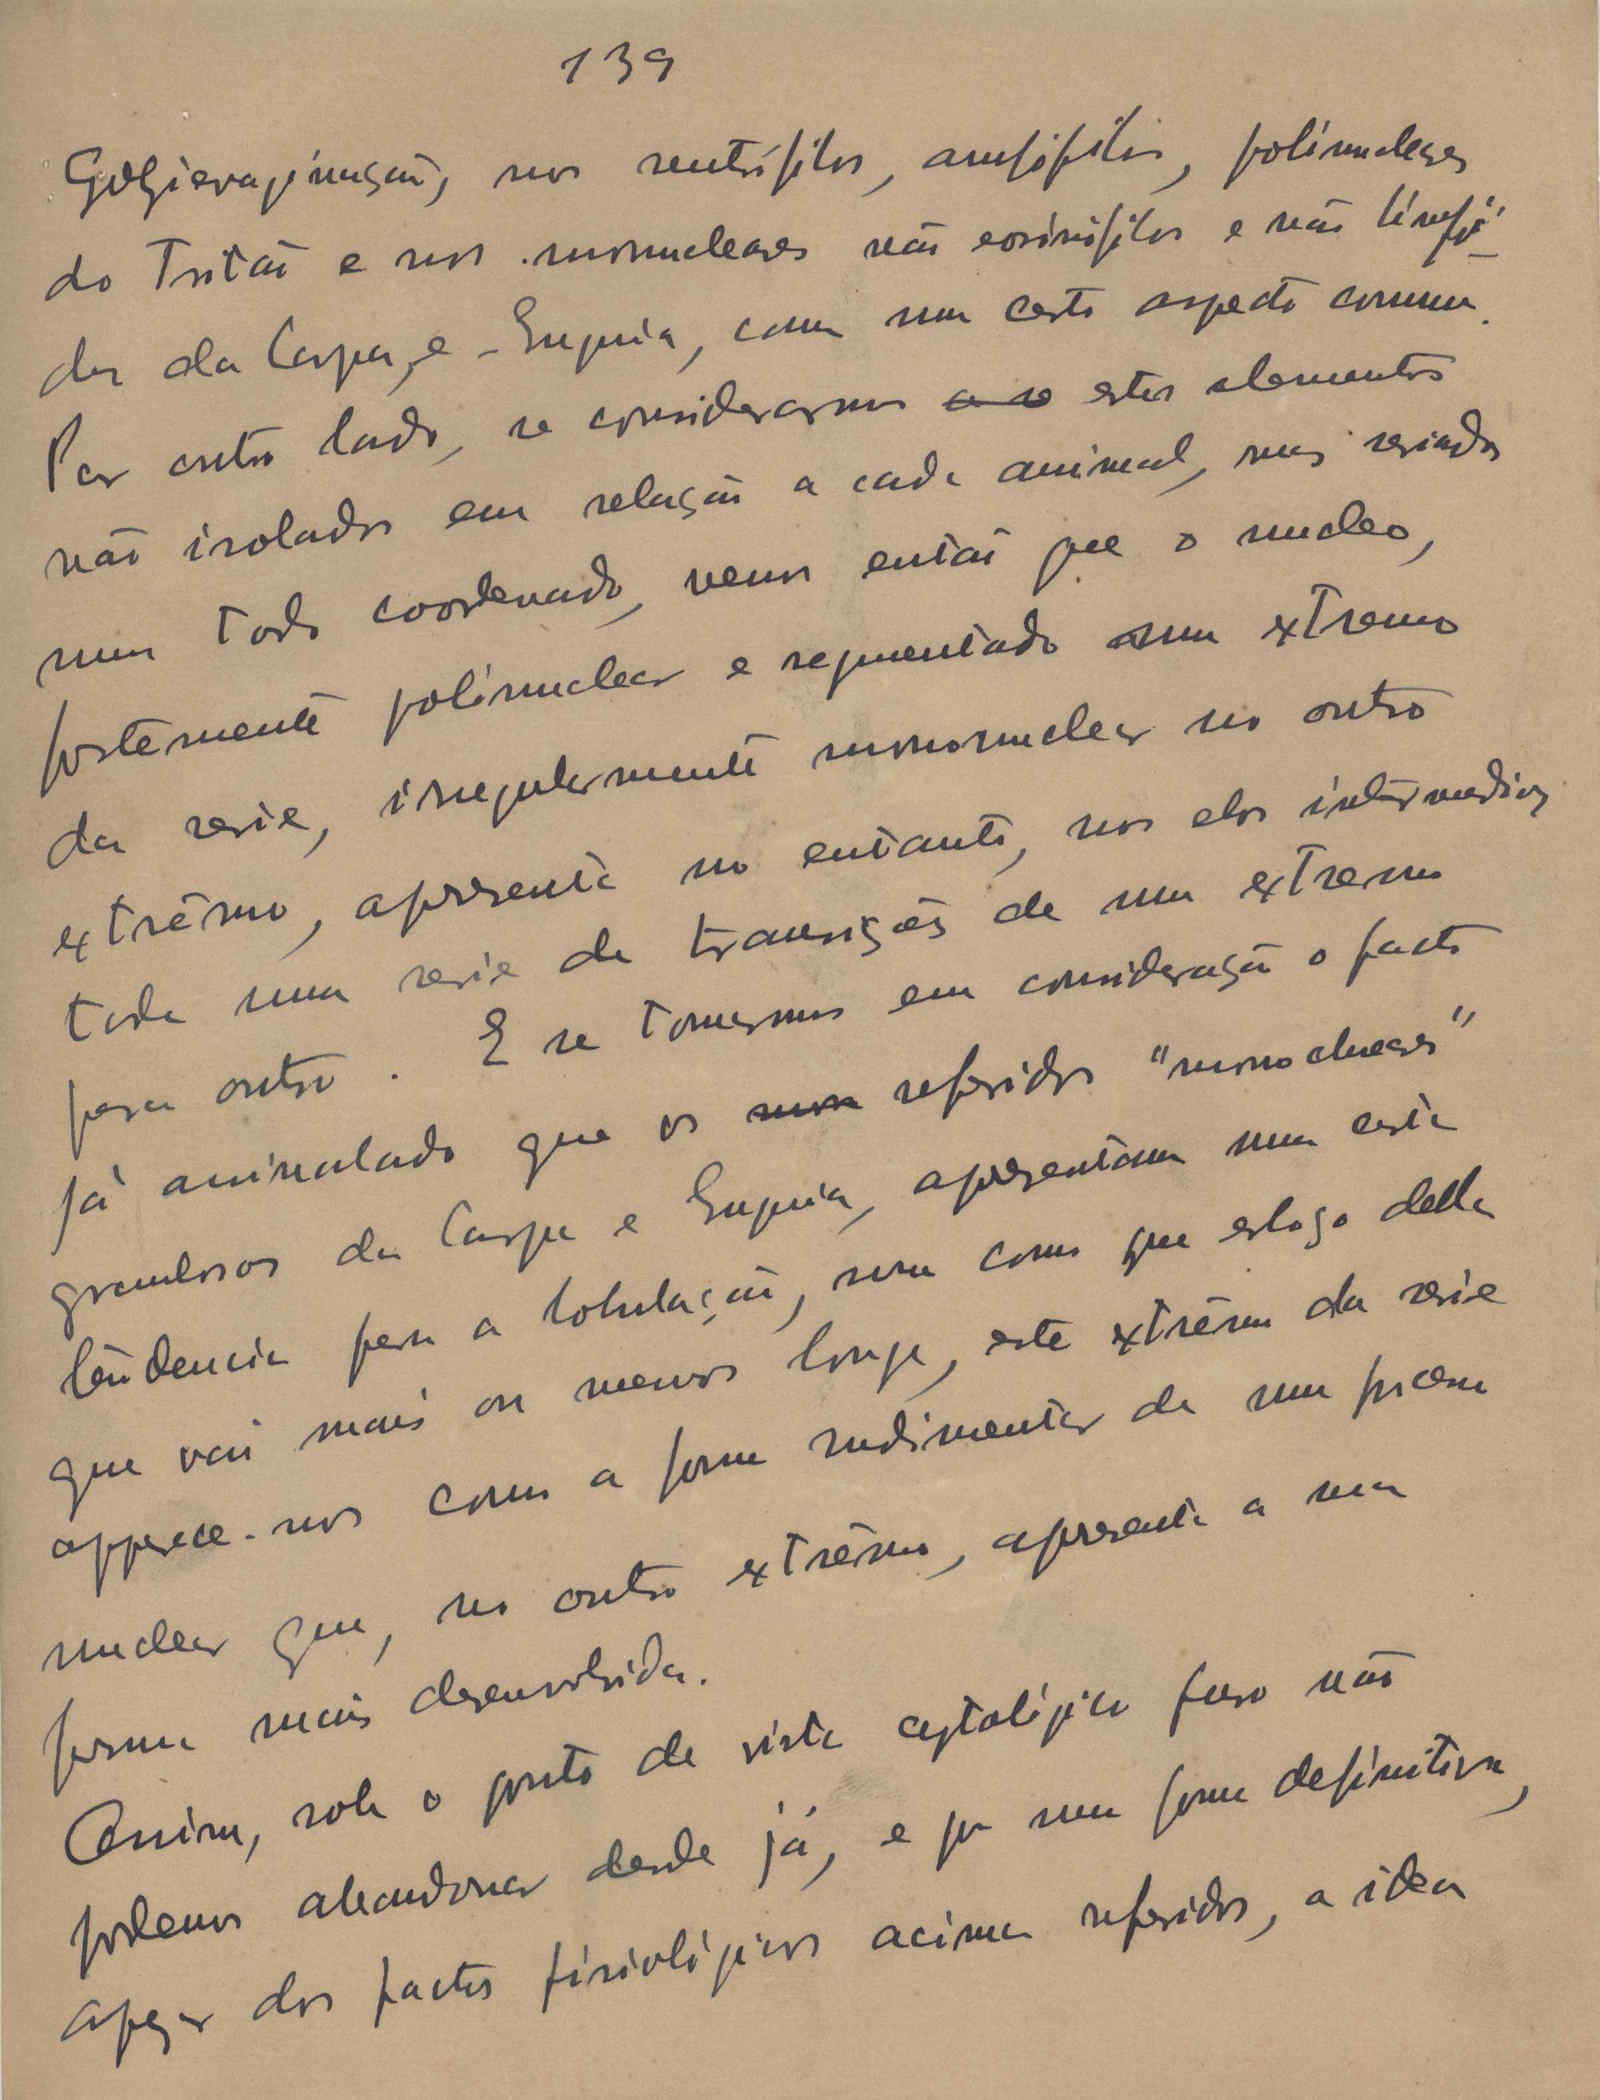 139
nos neutrófilos, anfófilos, polínucleares
do Tritão e nos mononucleares não eosinófilos e não línfói-
des da Carpa, e Enguia, com um certo aspecto comum.
Por outro lado, se considerarmos a se estes elementos
não isolados em relação a cada animal, mas seriados
num todo coordenado, vemos então que o nucleo,
fortemente polínuclear e segmentado num extremo
da serie, irregularmente mononuclear no outro
extrêmo, apresenta no entanto, nos elos intermedios
toda uma serie de transições de um extremo
para outro. E se tomarmos em consideração o facto
já assinalado que os mon referidos "mononucleares"
granulosos da Carpa e Enguia, apresentam uma certa
tendencia para a lobulação, um como que esboço della
que vai mais ou menos longe, este extrêmo da serie
apparece-nos como a forma rudimentar de um processo
nuclear que, no outro extrêmo, apresenta a sua
forma mais desenvolvida.
Assim, sob o ponto de vista cytológico puro não
podemos abandonar desde já, e por uma forma definitiva,
apezar dos factos fisiológicos acima referidos, a idea